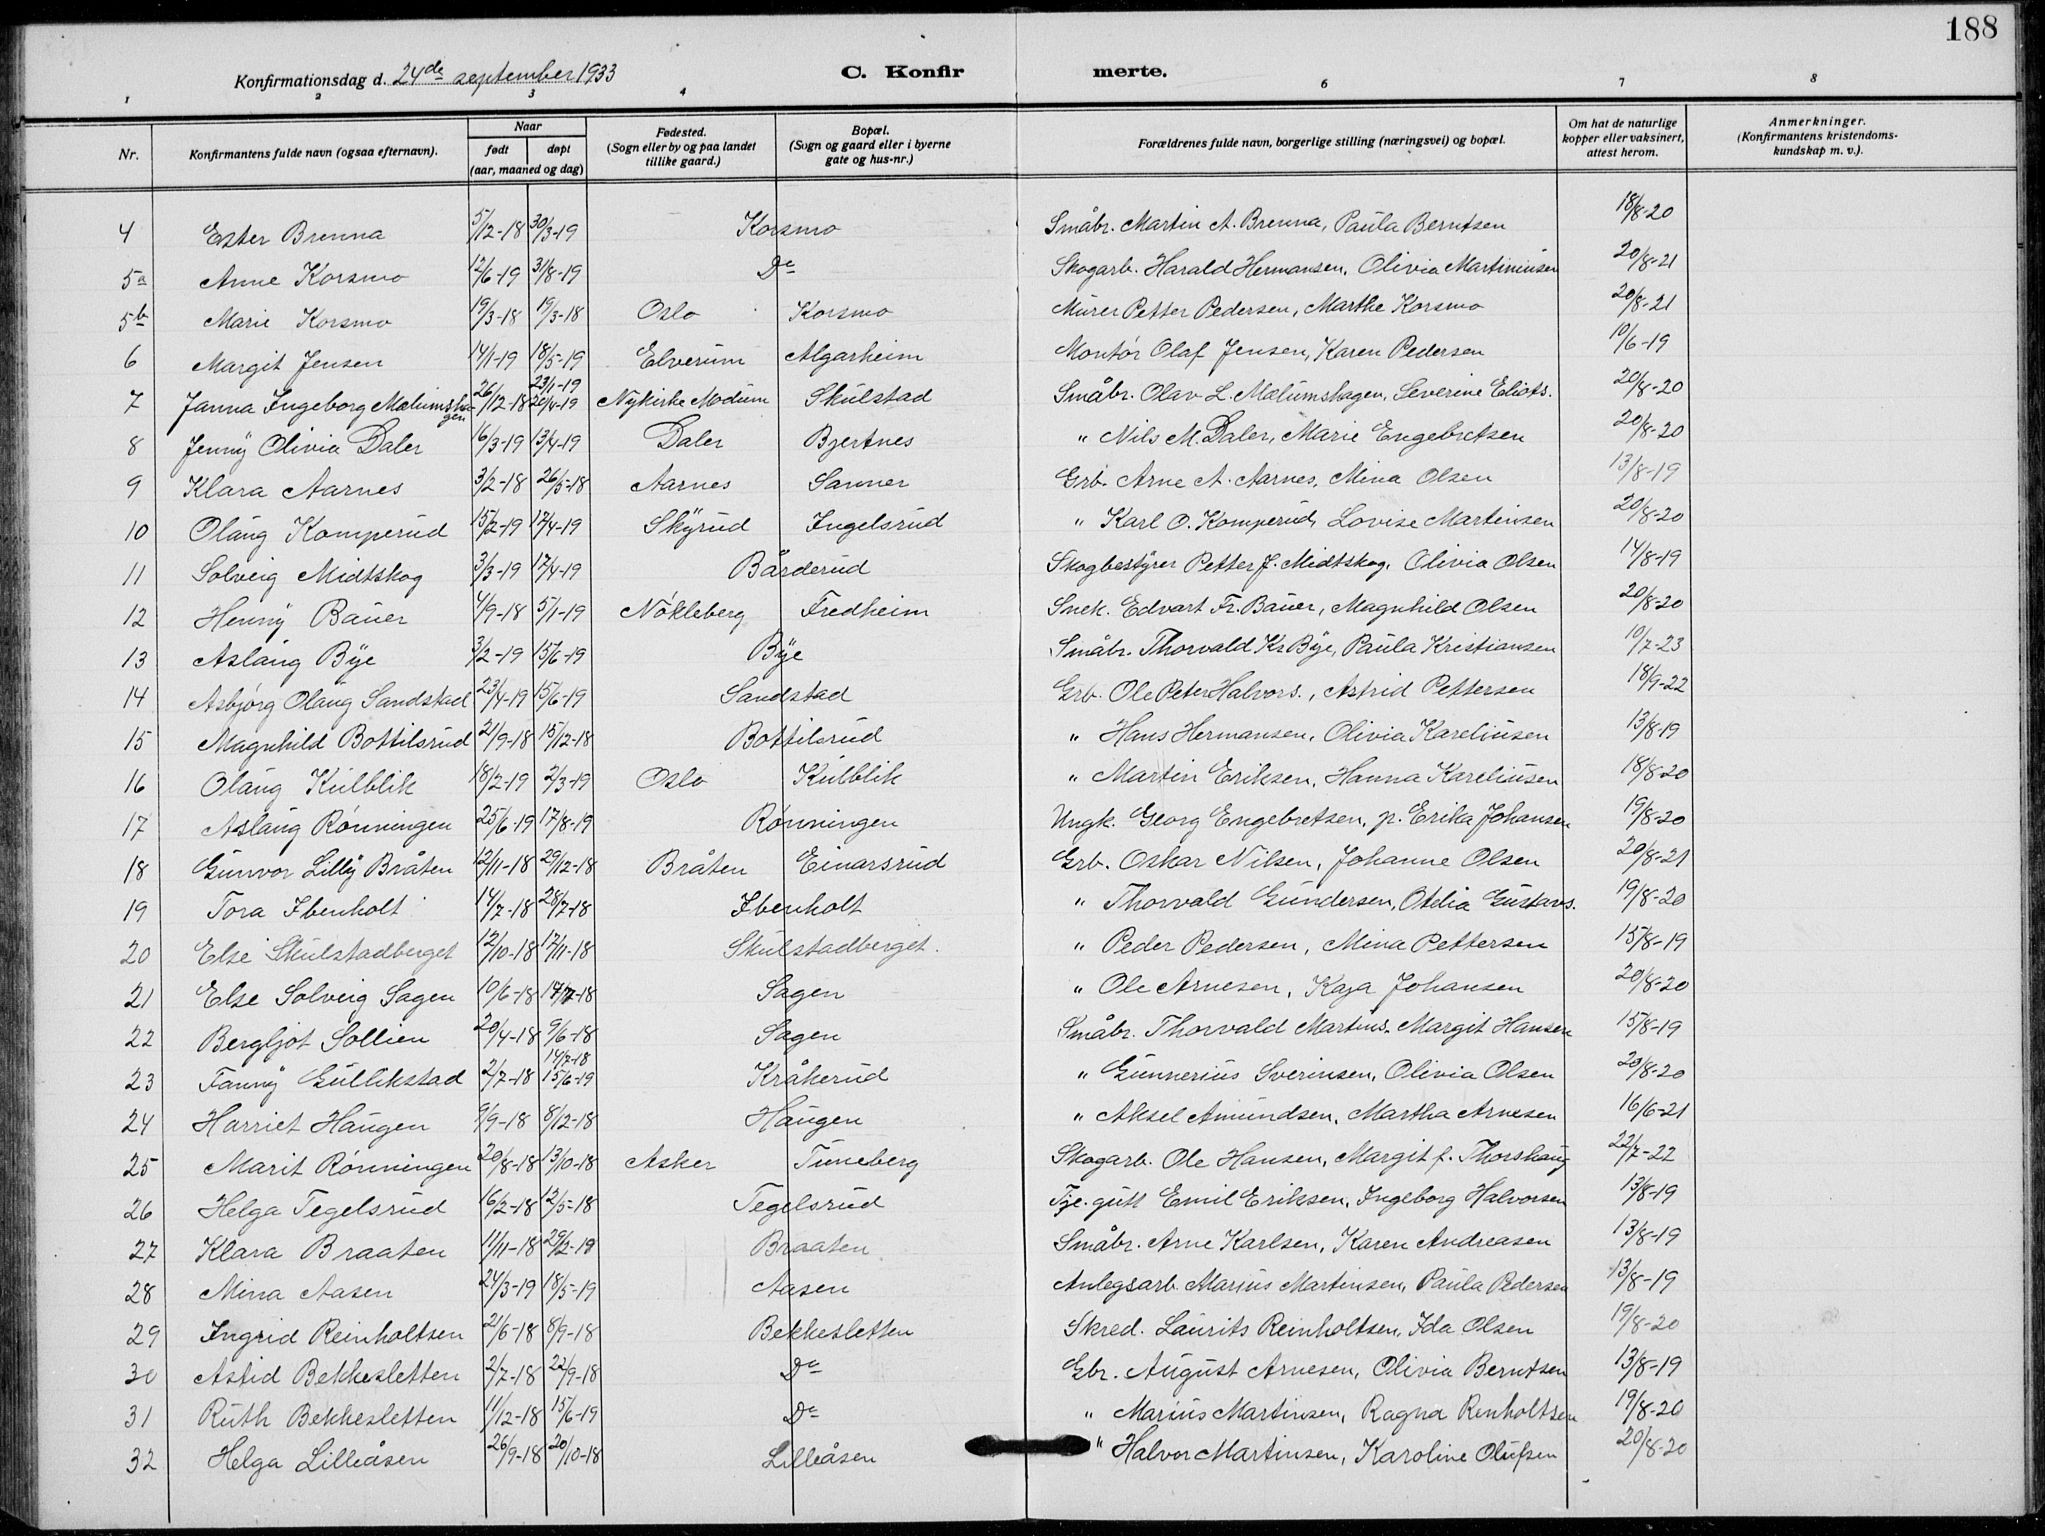 188
Konfirmationsdag d. 24de september 1933 C. Konfir merte.
1 2 3 4 6 7 8
Nr. Konfirmantens fulde navn (ogsaa efternavn). Naar født døpt (aar, maaned og dag) Fødested. (Sogn eller by og paa landet tillike gaard.) Bopæl. (Sogn og gaard eller i byerne gate og hus-nr.) Forældrenes fulde navn, borgerlige stilling (næringsvei) og bopæl. Om hat de naturlige kopper eller vaksinert, attest herom. Anmerkninger. (Konfirmantens kristendoms-kundskap m. v.).
4 Ester Brenna 5/12-18 30/3-19 Korsmo Småbr. Martin A. Brenna, Paula Berntsen 18/8-20
5a Anne Korsmo 12/6-19 31/8-19 Do Skogarb. Harald Hermansen, Olivia Martiniusen 20/8-21
5b Marie Korsmo 19/3-18 19/3-18 Oslo Korsmo Murer Petter Pedersen, Marthe Korsmo 20/8-21
6 Margit Jensen 14/1-19 18/5-19 Elverum Algarheim Montør Olaf Jensen, Karen Pedersen 10/6-19
7 Janna Ingeborg Mælumshagen 26/12-18 23/1-19 20/4-19 Nykirke Modum Skulstad Småbr. Olav L. Mælumshagen, Severine Eliots. 20/8-20
8 Jenny Olivia Daler 16/3-19 13/4-19 Daler Bjertnes " Nils M. Daler, Marie Engebretsen 20/8-20
9 Klara Aarnes 3/2-18 26/5-18 Aarnes Sanner Grb. Arne A. Aarnes, Mina Olsen 13/8-19
10 Olaug Komperud 15/2-19 17/4-19 Skyrud Ingelsrud " Karl O. Komperud, Lovise Martinsen 20/8-20
11 Solveig Midtskog 3/3-19 17/4-19 Bårderud Skogbestyrer Petter J. Midtskog, Olivia Olsen 14/8-19
12 Henny Bauer 4/9-18 5/1-19 Nøkleberg Fredheim Snek. Edvart Fr. Bauer, Magnhild Olsen 20/8-20
13 Aslaug Bye 3/2-19 15/6-19 Bye Småbr. Thorvald Kr Bye, Paula Kristiansen 10/7-23
14 Asbjørg Olaug Sandstad 23/4-19 15/6-19 Sandstad Grb. Ole Peter Halvors., Astrid Pettersen 18/9-22
15 Magnhild Bottilsrud 21/9-18 15/12-18 Bottilsrud " Hans Hermansen, Olivia Kareliusen 13/8-19
16 Olaug Kulblik 18/2-19 2/3-19 Oslo Kulblik " Martin Eriksen, Hanna Kareliusen 18/8-20
17 Aslaug Rønningen 25/6-19 17/8-19 Rønningen Ungk. Georg Engebretsen, p. Erika Johansen 19/8-20
18 Gunvor Lilly Bråten 12/11-18 29/12-18 Bråten Einarsrud Grb. Oskar Nilsen, Johanne Olsen 20/8-21
19 Tora Ibenholt 14/7-18 28/7-18 Ibenholt " Thorvald Gundersen, Otelia Gustavs. 19/8-20
20 Else Skulstadberget 12/10-18 17/11-18 Skulstadberget. " Peder Pedersen, Mina Pettersen 15/8-19
21 Else Solveig Sagen 10/6-18 14/7-18 Sagen " Ole Arnesen, Kaja Johansen 20/8-20
22 Bergljot Sollien 20/4-18 9/6-18 Sagen Småbr. Thorvald Martins. Margit Hansen 15/8-19
23 Fanny Gullikstad 2/7-18 14/7-18 15/6-19 Kråkerud " Gunnerius Sverinsen, Olivia Olsen 20/8-20
24 Harriet Haugen 9/9-18 8/12-18 Haugen " Aksel Amundsen, Martha Arnesen 16/6-21
25 Marit Rønningen 20/8-18 13/10-18 Asker Tuneberg Skogarb. Ole Hansen, Margit f. Thorshaug 22/7-22
26 Helga Tegelsrud 16/2-18 12/5-18 Tegelsrud Tje. gutt Emil Eriksen, Ingeborg Halvorsen 13/8-19
27 Klara Braaten 11/11-18 29/2-19 Braaten Småbr. Arne Karlsen, Karen Andreasen 13/8-19
28 Mina Aasen 24/3-19 18/5-19 Aasen Anlegsarb. Marius Martinsen, Paula Pedersen 13/8-19
29 Ingrid Reinholtsen 21/6-18 8/9-18 Bekkesletten Skred. Laurits Reinholtsen, Ida Olsen 19/8-20
30 Astid Bekkesletten 2/7-18 22/9-18 Do Gbr. August Arnesen, Olivia Berntsen 13/8-19
31 Ruth Bekkesletten 11/12-18 15/6-19 Do " Marius Martinsen, Ragna Renholtsen 19/8-20
32 Helga Lilleåsen 26/9-18 20/10-18 Lilleåsen " Halvor Martinsen, Karoline Olufsen 20/8-20